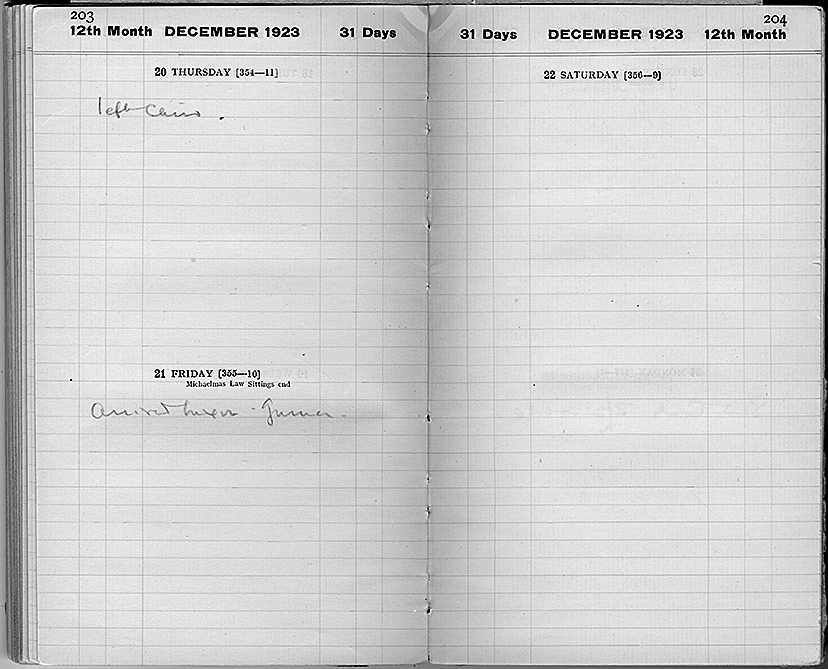 203
12th Month DECEMBER 1923 31 Days
20 THURSDAY [354—11]
left Cairo.
21 FRIDAY [355—10]
Michaelmas Law Sittings end
arrived Luxor.
204
31 Days DECEMBER 1923 12th Month
22 SATURDAY [356—9]